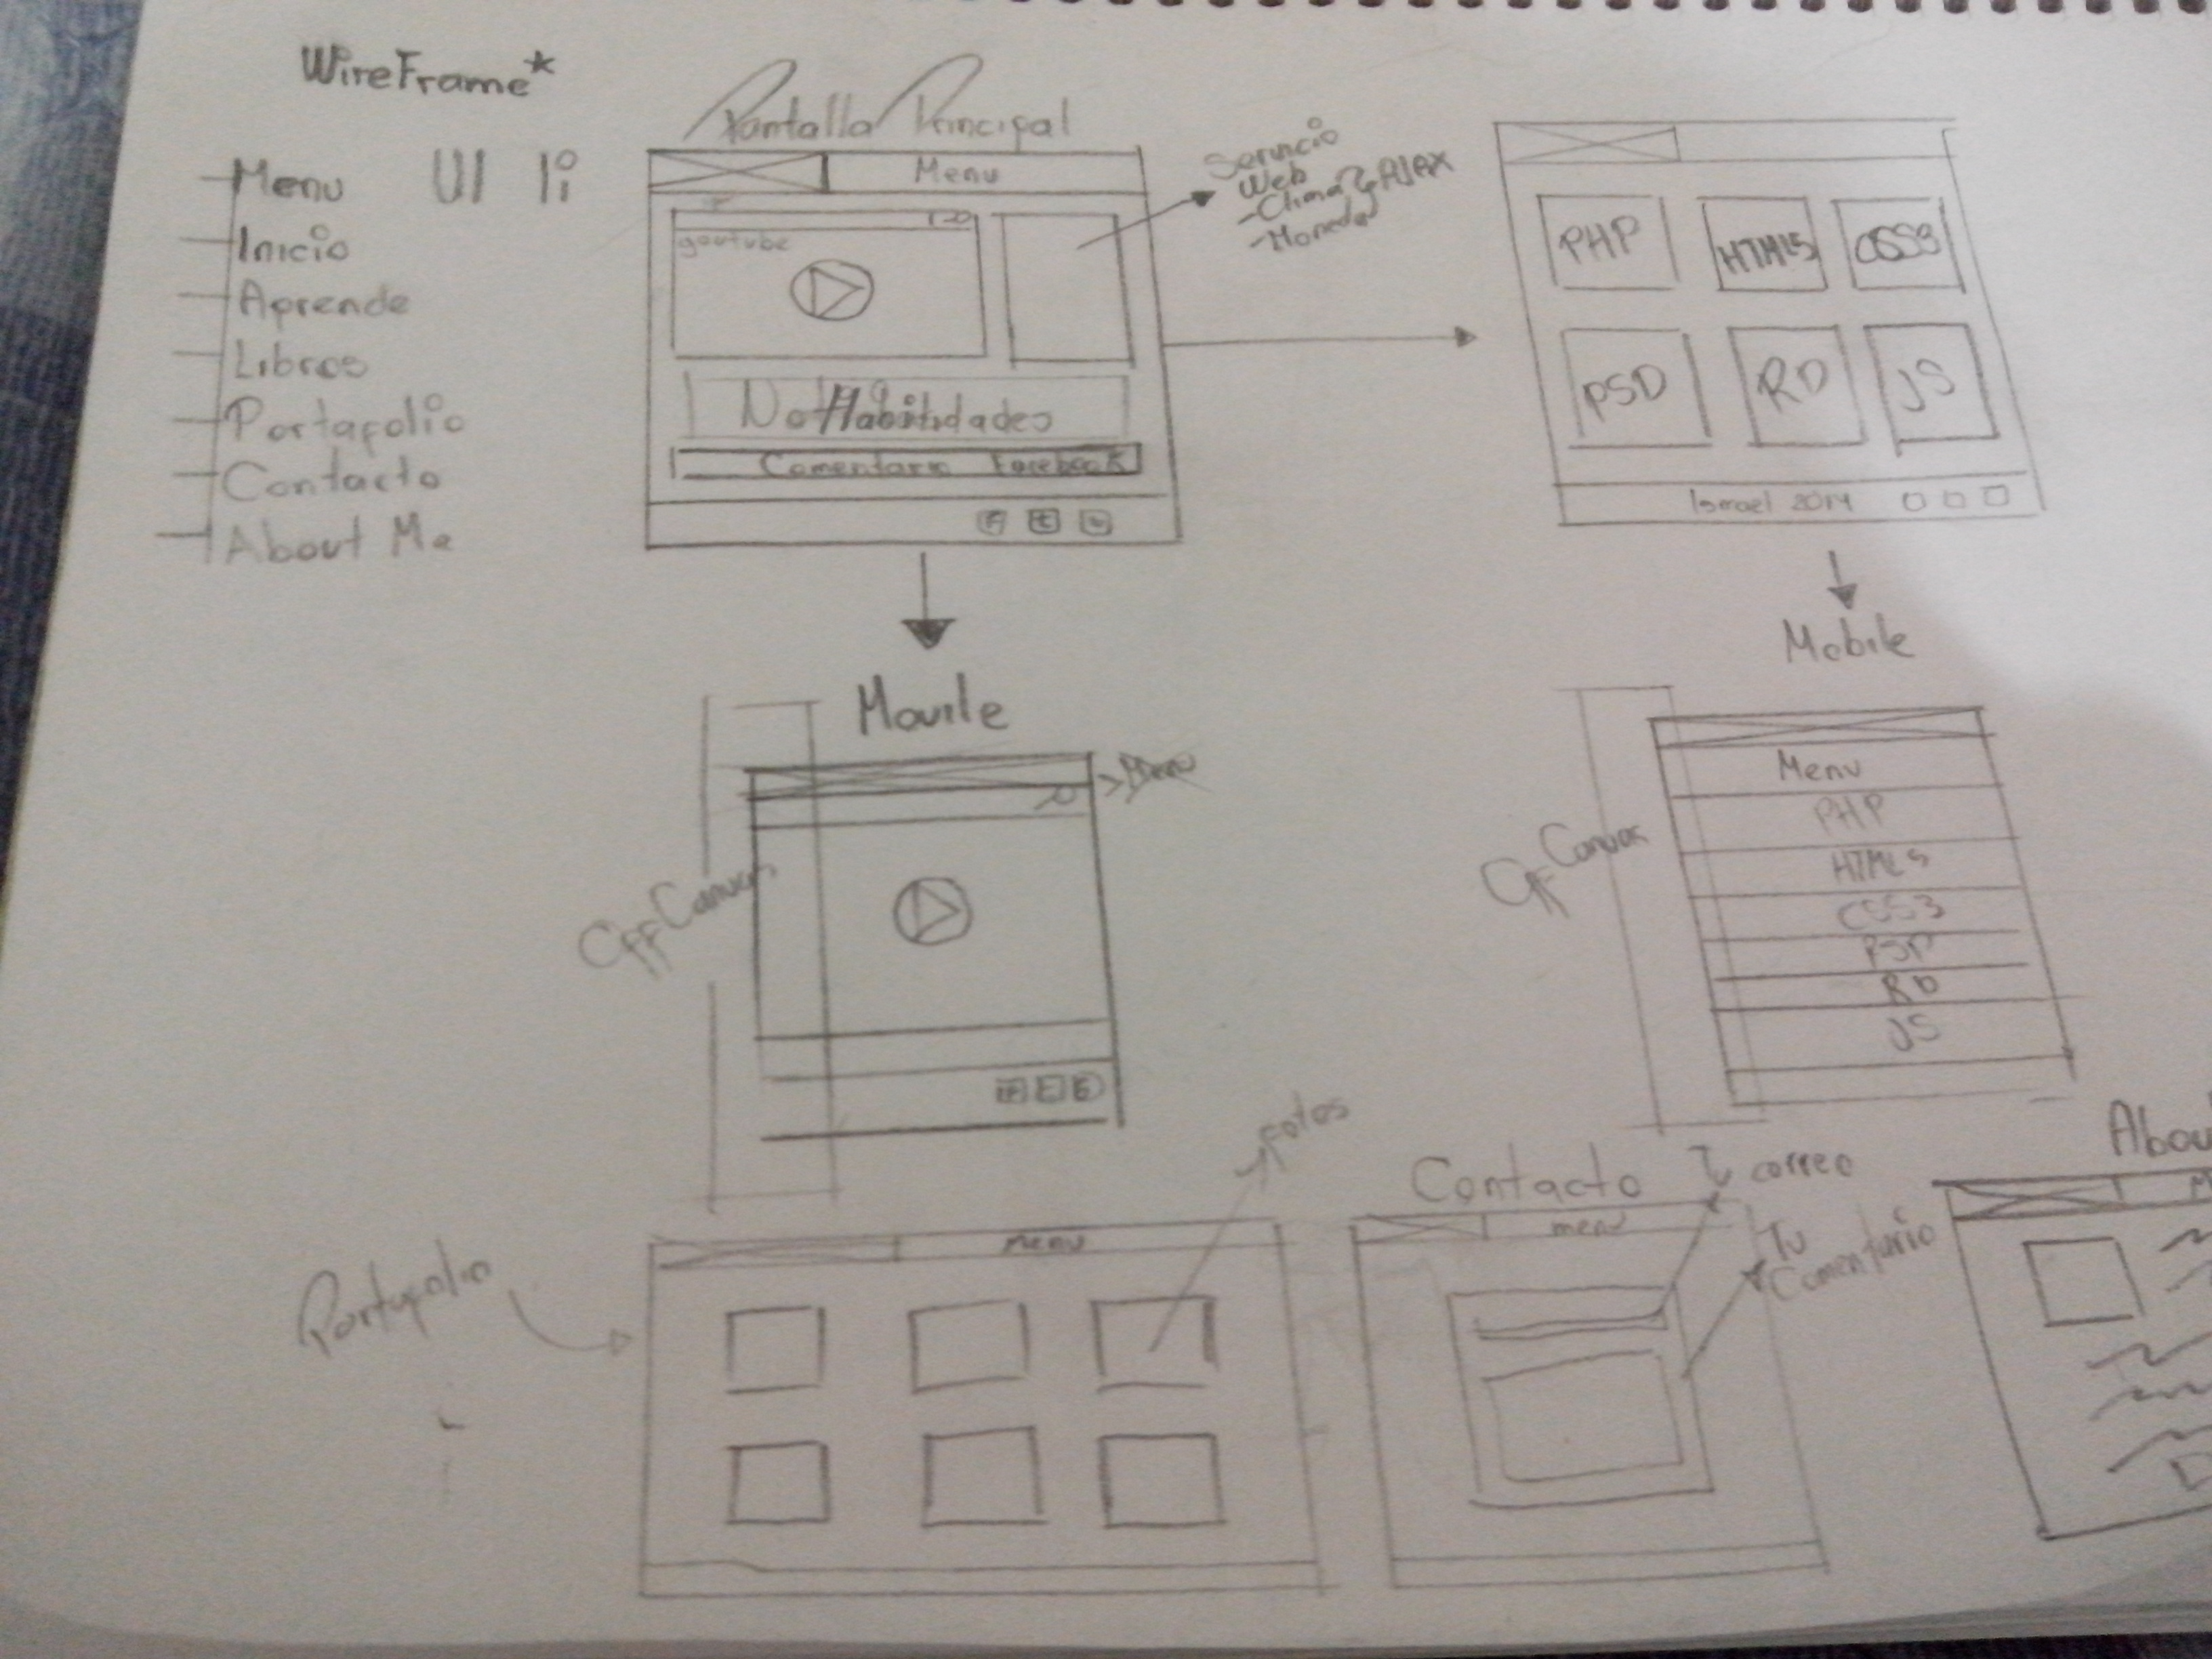 WireFrame*
Menu UI
Inicio
Aprende
Libros
Portafolio
Contacto
About Me
Pantalla Principal
Menu
youtube
Habilidades
Comentario Facebook
Servicio
Web
-Clima
-Moneda
AJAX
PHP
HTML5
CSS3
PSD
RD
JS
Ismael 2014
Movile
Off Canvas
Mobile
Off Canvas
Menu
PHP
HTML5
CSS3
PSD
RD
JS
Portafolio
menu
Fotos
Contacto
menu
Tu correo
Tu
Comentario
Abou
M